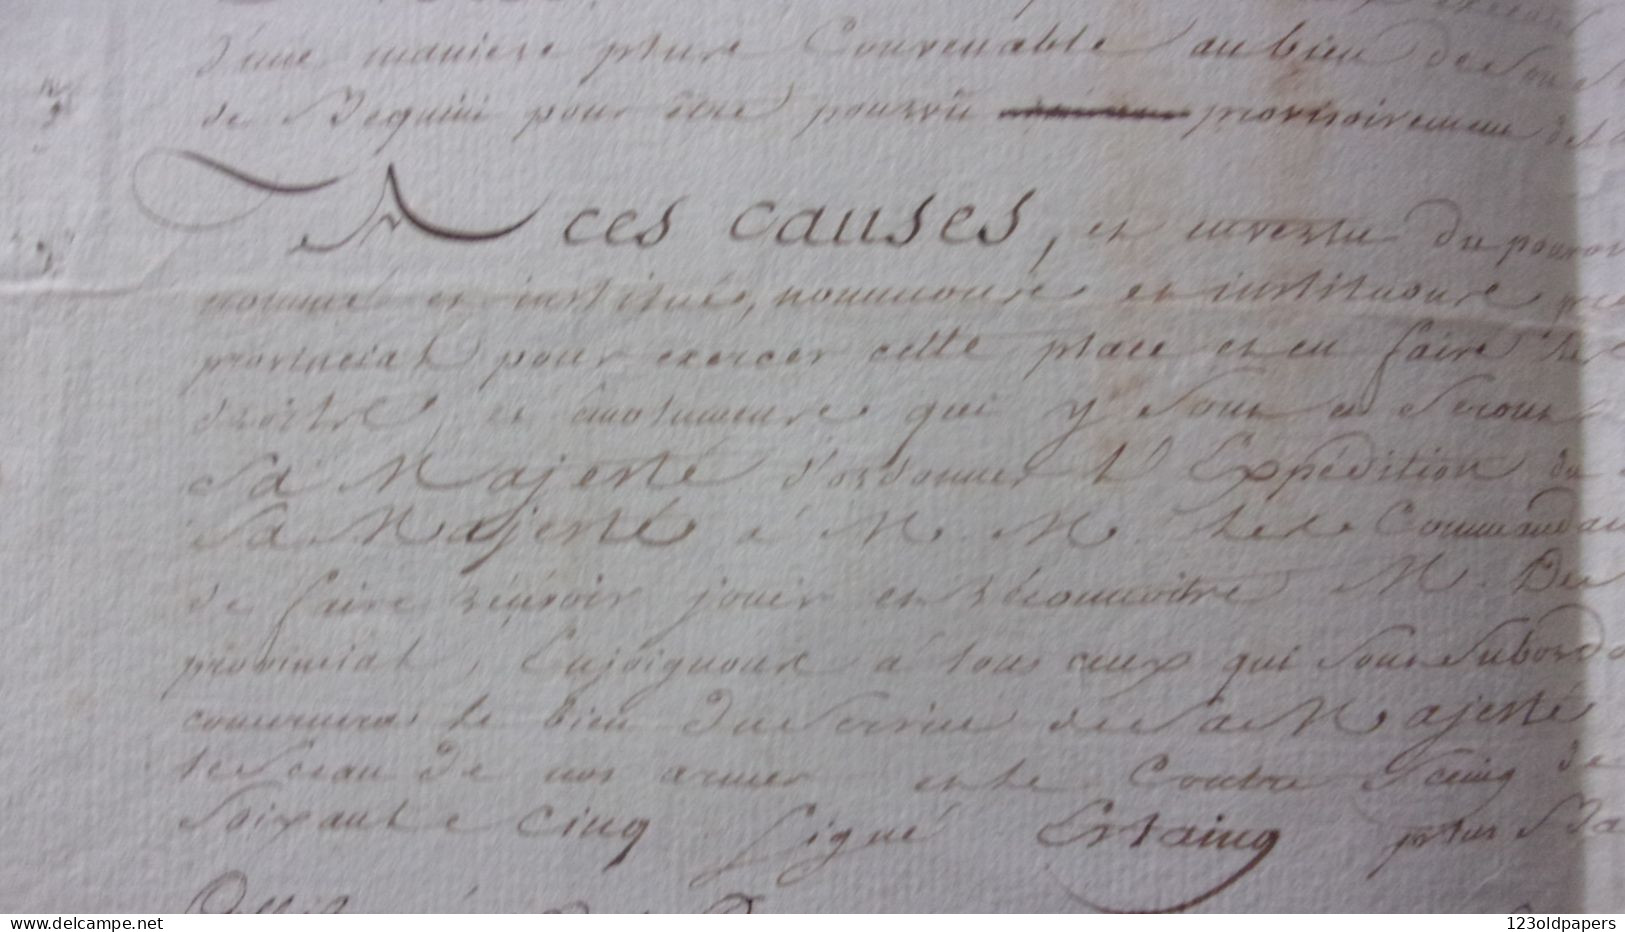 d'une maniere plus Convenable au bien de son S
de Bequini pour être pourvû provisoirement de la
A ces causes, et en vertu du pouvoir
nommé et institué, nommons et instituons
provincial pour exercer cette place et en faire les
droits, et émolumens qui y sont et seront
Sa Majesté d'ordonner l'Expédition du
Sa Majesté à M. M. les Commandan
de faire recevoir jouir et réconnoitre M. De
provincial, Enjoignons à tous ceux qui sont Subordo
concernera le bien du Service de Sa Majesté
le Sceau de nos armes et le Contre Seing de
Soixante cinq Signé Estaing plus bas
Collat
www.delcampe.net
123oldpapers